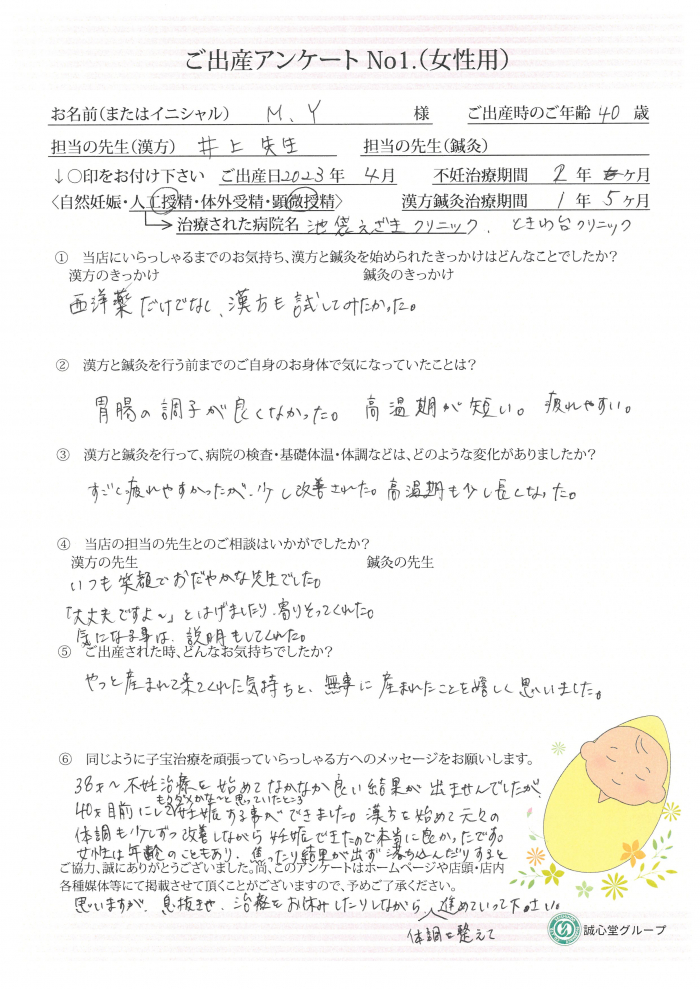 ご出産アンケート No1.(女性用)
お名前(またはイニシャル) M、Y 様 ご出産時のご年齢 40 歳
担当の先生(漢方) 井上先生 担当の先生(鍼灸)
↓〇印をお付け下さい ご出産日2023年 4月 不妊治療期間 2年 ヶ月
〈自然妊娠・人工授精・体外受精・顕微授精〉 漢方鍼灸治療期間 1年 5ヶ月
治療された病院名 池袋えざきクリニック、ときわ台クリニック
① 当店にいらっしゃるまでのお気持ち、漢方と鍼灸を始められたきっかけはどんなことでしたか?
漢方のきっかけ 鍼灸のきっかけ
西洋薬だけでなく、漢方も試してみたかった。
② 漢方と鍼灸を行う前までのご自身のお身体で気になっていたことは?
胃腸の調子が良くなかった。 高温期が短い。 疲れやすい。
③ 漢方と鍼灸を行って、病院の検査・基礎体温・体調などは、どのような変化がありましたか?
すごく疲れやすかったが、少し改善された。高温期も少し長くなった。
④ 当店の担当の先生とのご相談はいかがでしたか?
漢方の先生 鍼灸の先生
いつも笑顔でおだやかな先生でした。
「大丈夫ですよ～」とはげましたり、寄りそってくれた。
気になる事は、説明もしてくれた。
⑤ ご出産された時、どんなお気持ちでしたか?
やっと産まれて来てくれた気持ちと、無事に産まれたことを嬉しく思いました。
⑥ 同じように子宝治療を頑張っていらっしゃる方へのメッセージをお願いします。
38才～不妊治療を始めてなかなか良い結果が出ませんでしたが、
もうダメかな～と思っていたところ
40才目前にして妊娠する事ができました。漢方を始めて元々の
体調も少しずつ改善しながら妊娠できたので本当に良かったです。
女性は年齢のこともあり、焦ったり結果が出ず落ち込んだりすると
ご協力、誠にありがとうございました。尚、このアンケートはホームページや店頭・店内
各種媒体等にて掲載させて頂くことがございますので、予めご了承ください。
思いますが、息抜きや、治療をお休みしたりしながら進めていって下さい。
体調を整えて
誠心堂グループ